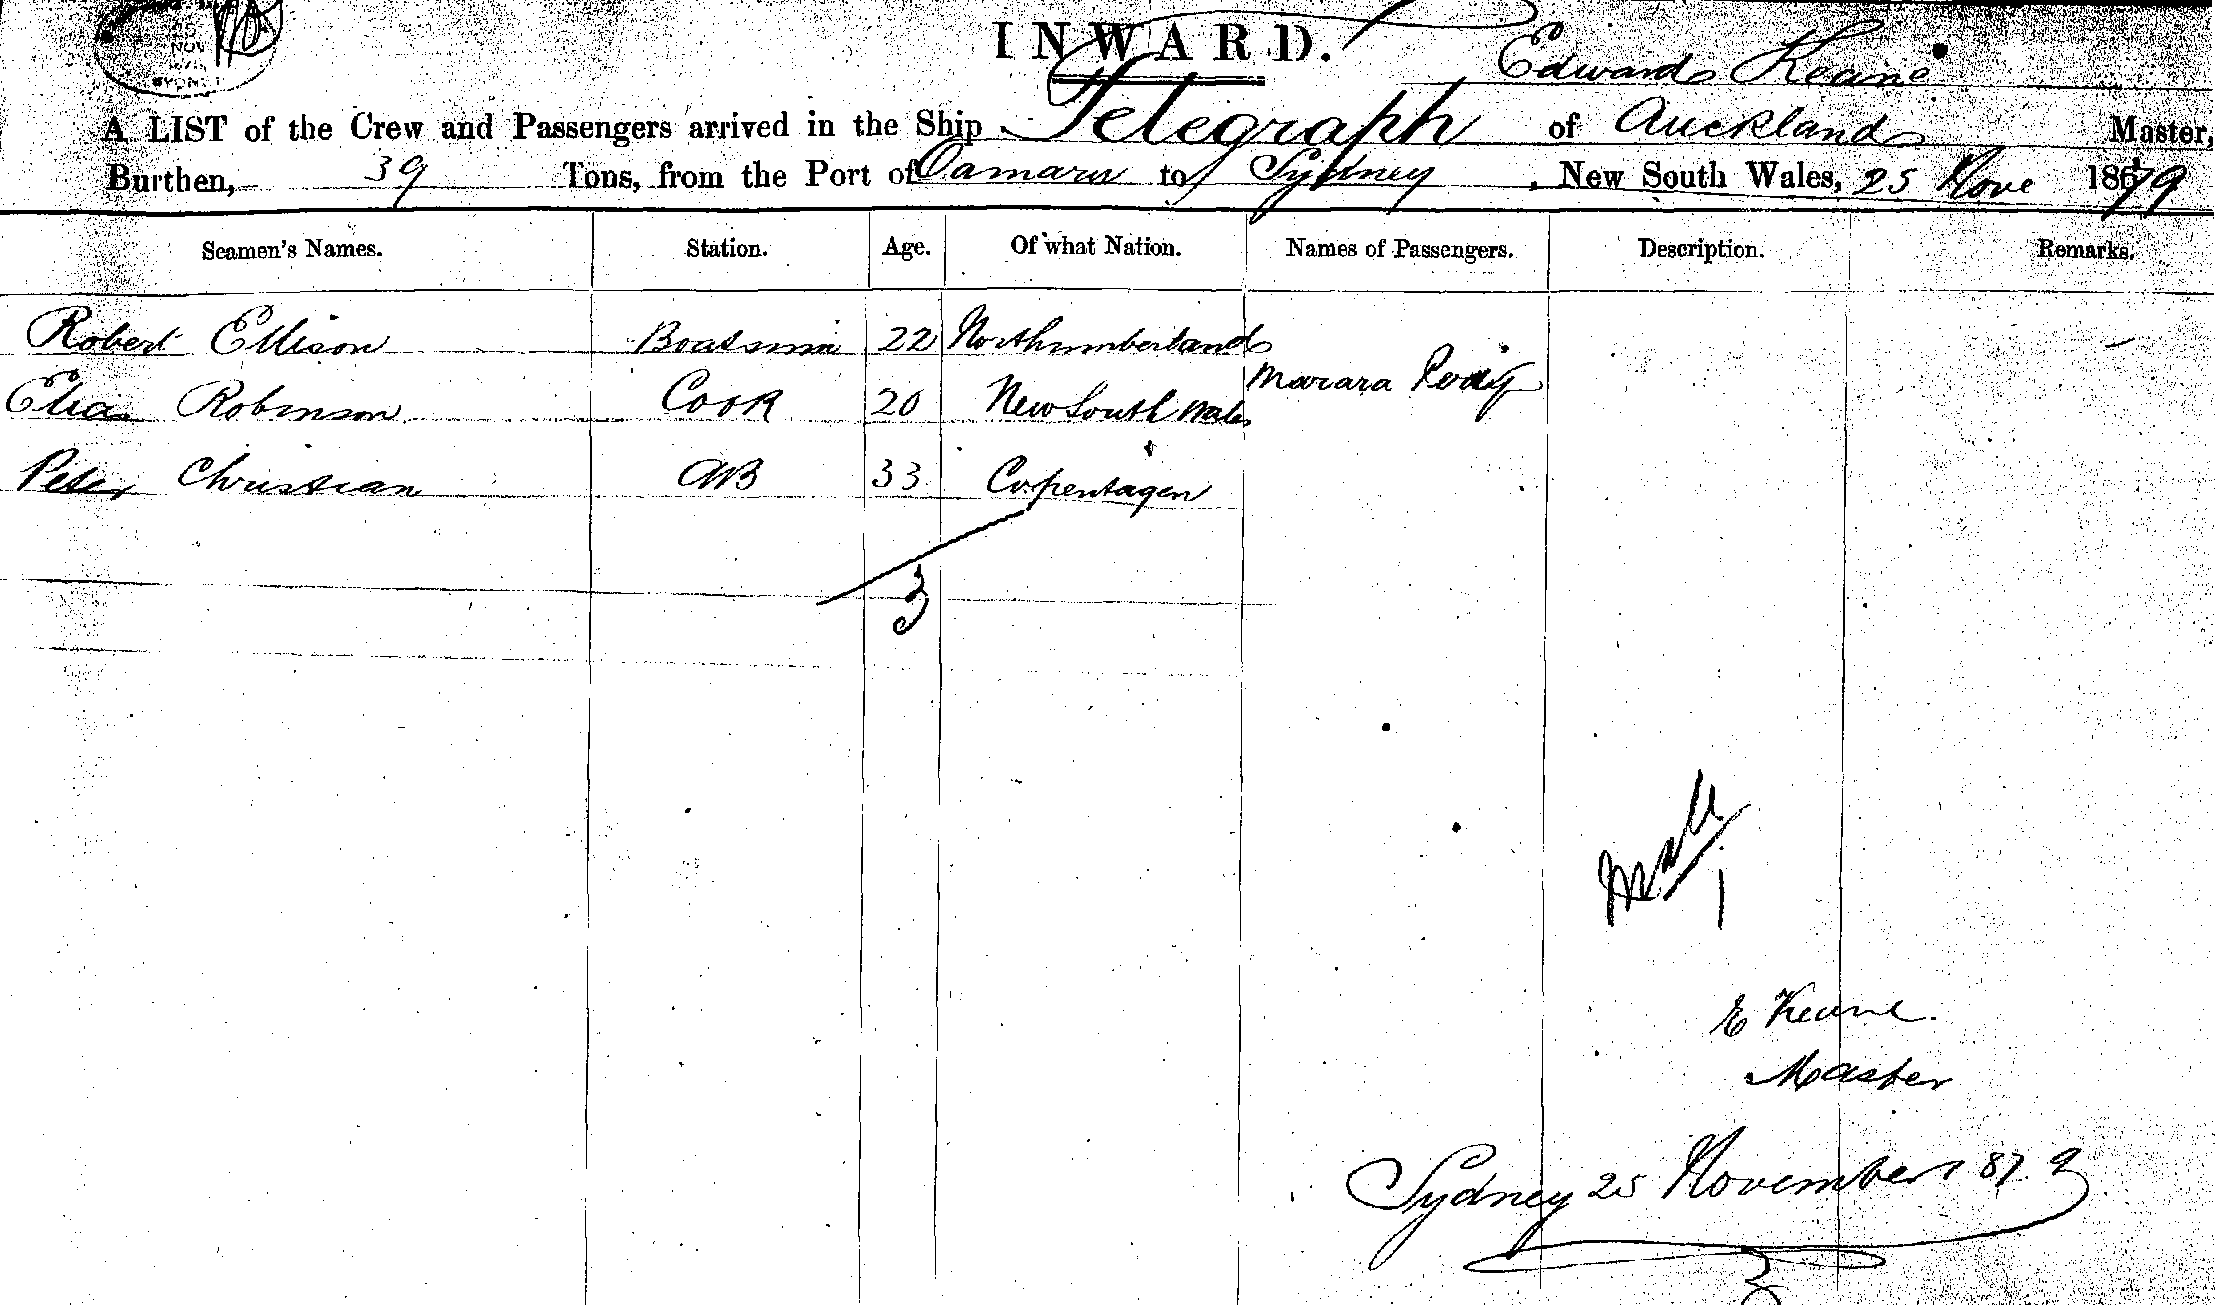 NOV
SYDNEY
INWARD.
Edward Keane
A LIST of the Crew and Passengers arrived in the Ship Telegraph of Auckland Master,
Burthen, 39 Tons, from the Port of Oamaru to Sydney, New South Wales, 25 Nove 1879
Seamen's Names. Station. Age. Of what Nation. Names of Passengers. Description. Remarks.
Robert Ellison Boatsmin 22 Northumberland
Marara
Elias Robinson Cook 20 New South Wales
Peter Christian AB 33 Copentagen
3
Mall
1
E Keane.
Master
Sydney 25 November 1879